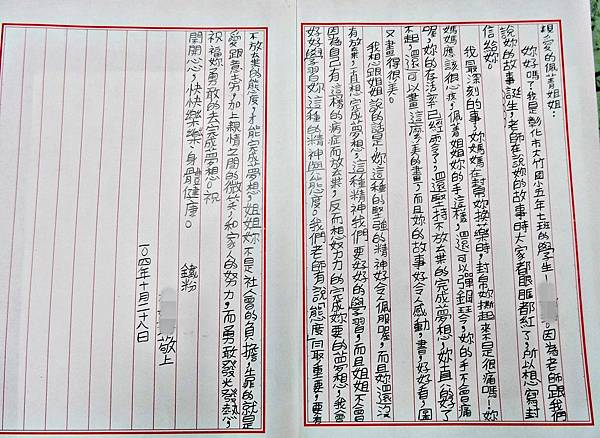 親愛的佩菁姐姐：
妳好嗎？我是彰化市大竹國小五年七班的學生—　　。因為老師跟我們
說妳的故事誕生，老師在說妳的故事時大家都眼眶都紅了，所以想寫封
信給妳。
我最深刻的事，妳媽媽在幫妳換藥時，封帛妳撕起來不是很痛嗎！妳
媽媽應該很心疼，佩菁姐姐妳的手這樣，還可以彈鋼琴，妳的手不會痛
喔，妳的存活率已經零了，還堅持不放棄的完成夢想，妳真的好了
不起，還可以畫這麼多的畫，而且妳的故事好令人感動，書好好看，圖
又畫得很美。
我想跟姐姐說的話是妳這種的堅強的精神好令人佩服喔，而且妳還沒
有放棄，一直想完成夢想，這種精神我們要好好的學習，而且姐姐不會
因為自己有這樣的病症而放去棄，反而想努力的完成妳要的夢想，我會
好好學習妳這種的精神與態度。我們老師有說「態度」向取重要，要有
不放棄的態度，才能完成夢想，姐姐妳不是社會的負擔，罪的就是
愛跟意志，加上親情之間的微笑，和家人的努力，而勇敢發光發熱，
祝福妳勇敢的去完成夢想。祝
開開心心，快快樂樂，身體健康。
鐵粉
敬上
一〇四年十月二十八日